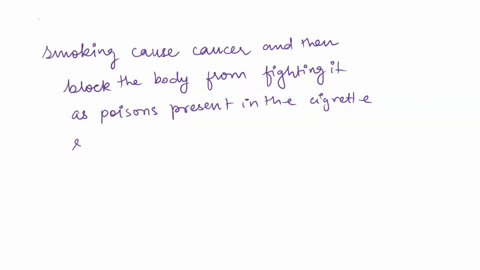 smoking cause cancer and then
block the body from fighting it
as poisons present in the cigrette